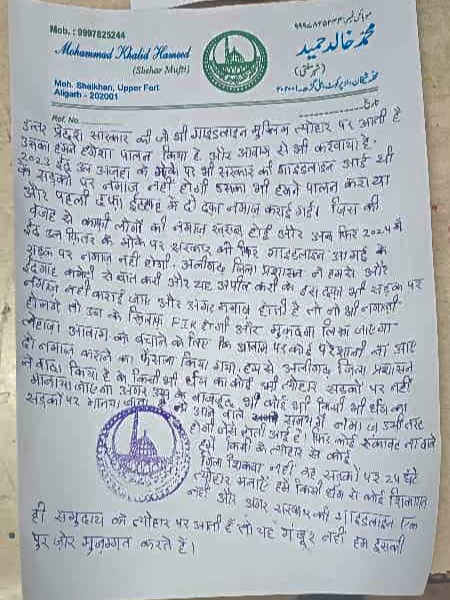 Mob. : 9997825244
Mohammad Khalid Hameed
(Shehar Mufti)
Moh. Sheikhan, Upper Fort
Aligarh - 202001
محمد خالد حمید
(شہر مفتی)
Ref. No.
उत्तर प्रदेश सरकार की जो भी गाइडलाइन मुस्लिम त्योहार पर आती है
उसका हमने हमेशा पालन किया है और आवाम से भी करवाया है।
2023 ईद उल अजहा के मौके पर भी सरकार की गाइडलाइन आई थी
के सड़को पर नमाज नहीं होगी उसका भी हमने पालन कराया
और पहली दफा ईदगाह में दो दफा नमाज कराई गई। जिस की
वजह से काफी लोगों की नमाज खराब होई और अब फिर 2024 में
ईद उल फितर के मौके पर सरकार की फिर गाइडलाइन आ गई के
सड़क पर नमाज नहीं होगी। अलीगढ़ जिला प्रशासन ने हमसे और
ईदगाह कमेटी से बात करी और यह अपील करी के इस दफा भी सड़क पर
नमाज नहीं कराई जाए और अगर नमाज होती है तो जो भी नमाजी
होंगे तो उन के खिलाफ FIR होगी और मुकदमा लिखा जाएगा
लेहाजा आवाम को बचाने के लिए कि आवाम पर कोई परेशानी ना आए
दो नमाज कराने का फैसला किया गया, हम से अलीगढ़ जिला प्रशासन
ने वादा किया है के किसी भी धर्म का कोई भी त्योहार सड़कों पर नहीं
मनाया जाएगा अगर उस के बावजूद भी कोई भी किसी भी धर्म का
सड़कों पर मनाया जाता है तो आने वाले समय में नमाज उसी तरह
होगी जैसे होती आई है। फिर कोई रुकावट ना डाले
हमें किसी के त्योहार से कोई
गिला शिकवा नहीं वह सड़कों पर 24 घंटे
त्योहार मनाएं हमें किसी धर्म से कोई शिकायत
नहीं और अगर सरकार की गाइडलाइन एक
ही समुदाय के त्योहार पर आती हैं तो यह मंजूर नहीं हम इसकी
पुर जोर मुजम्मत करते हैं।